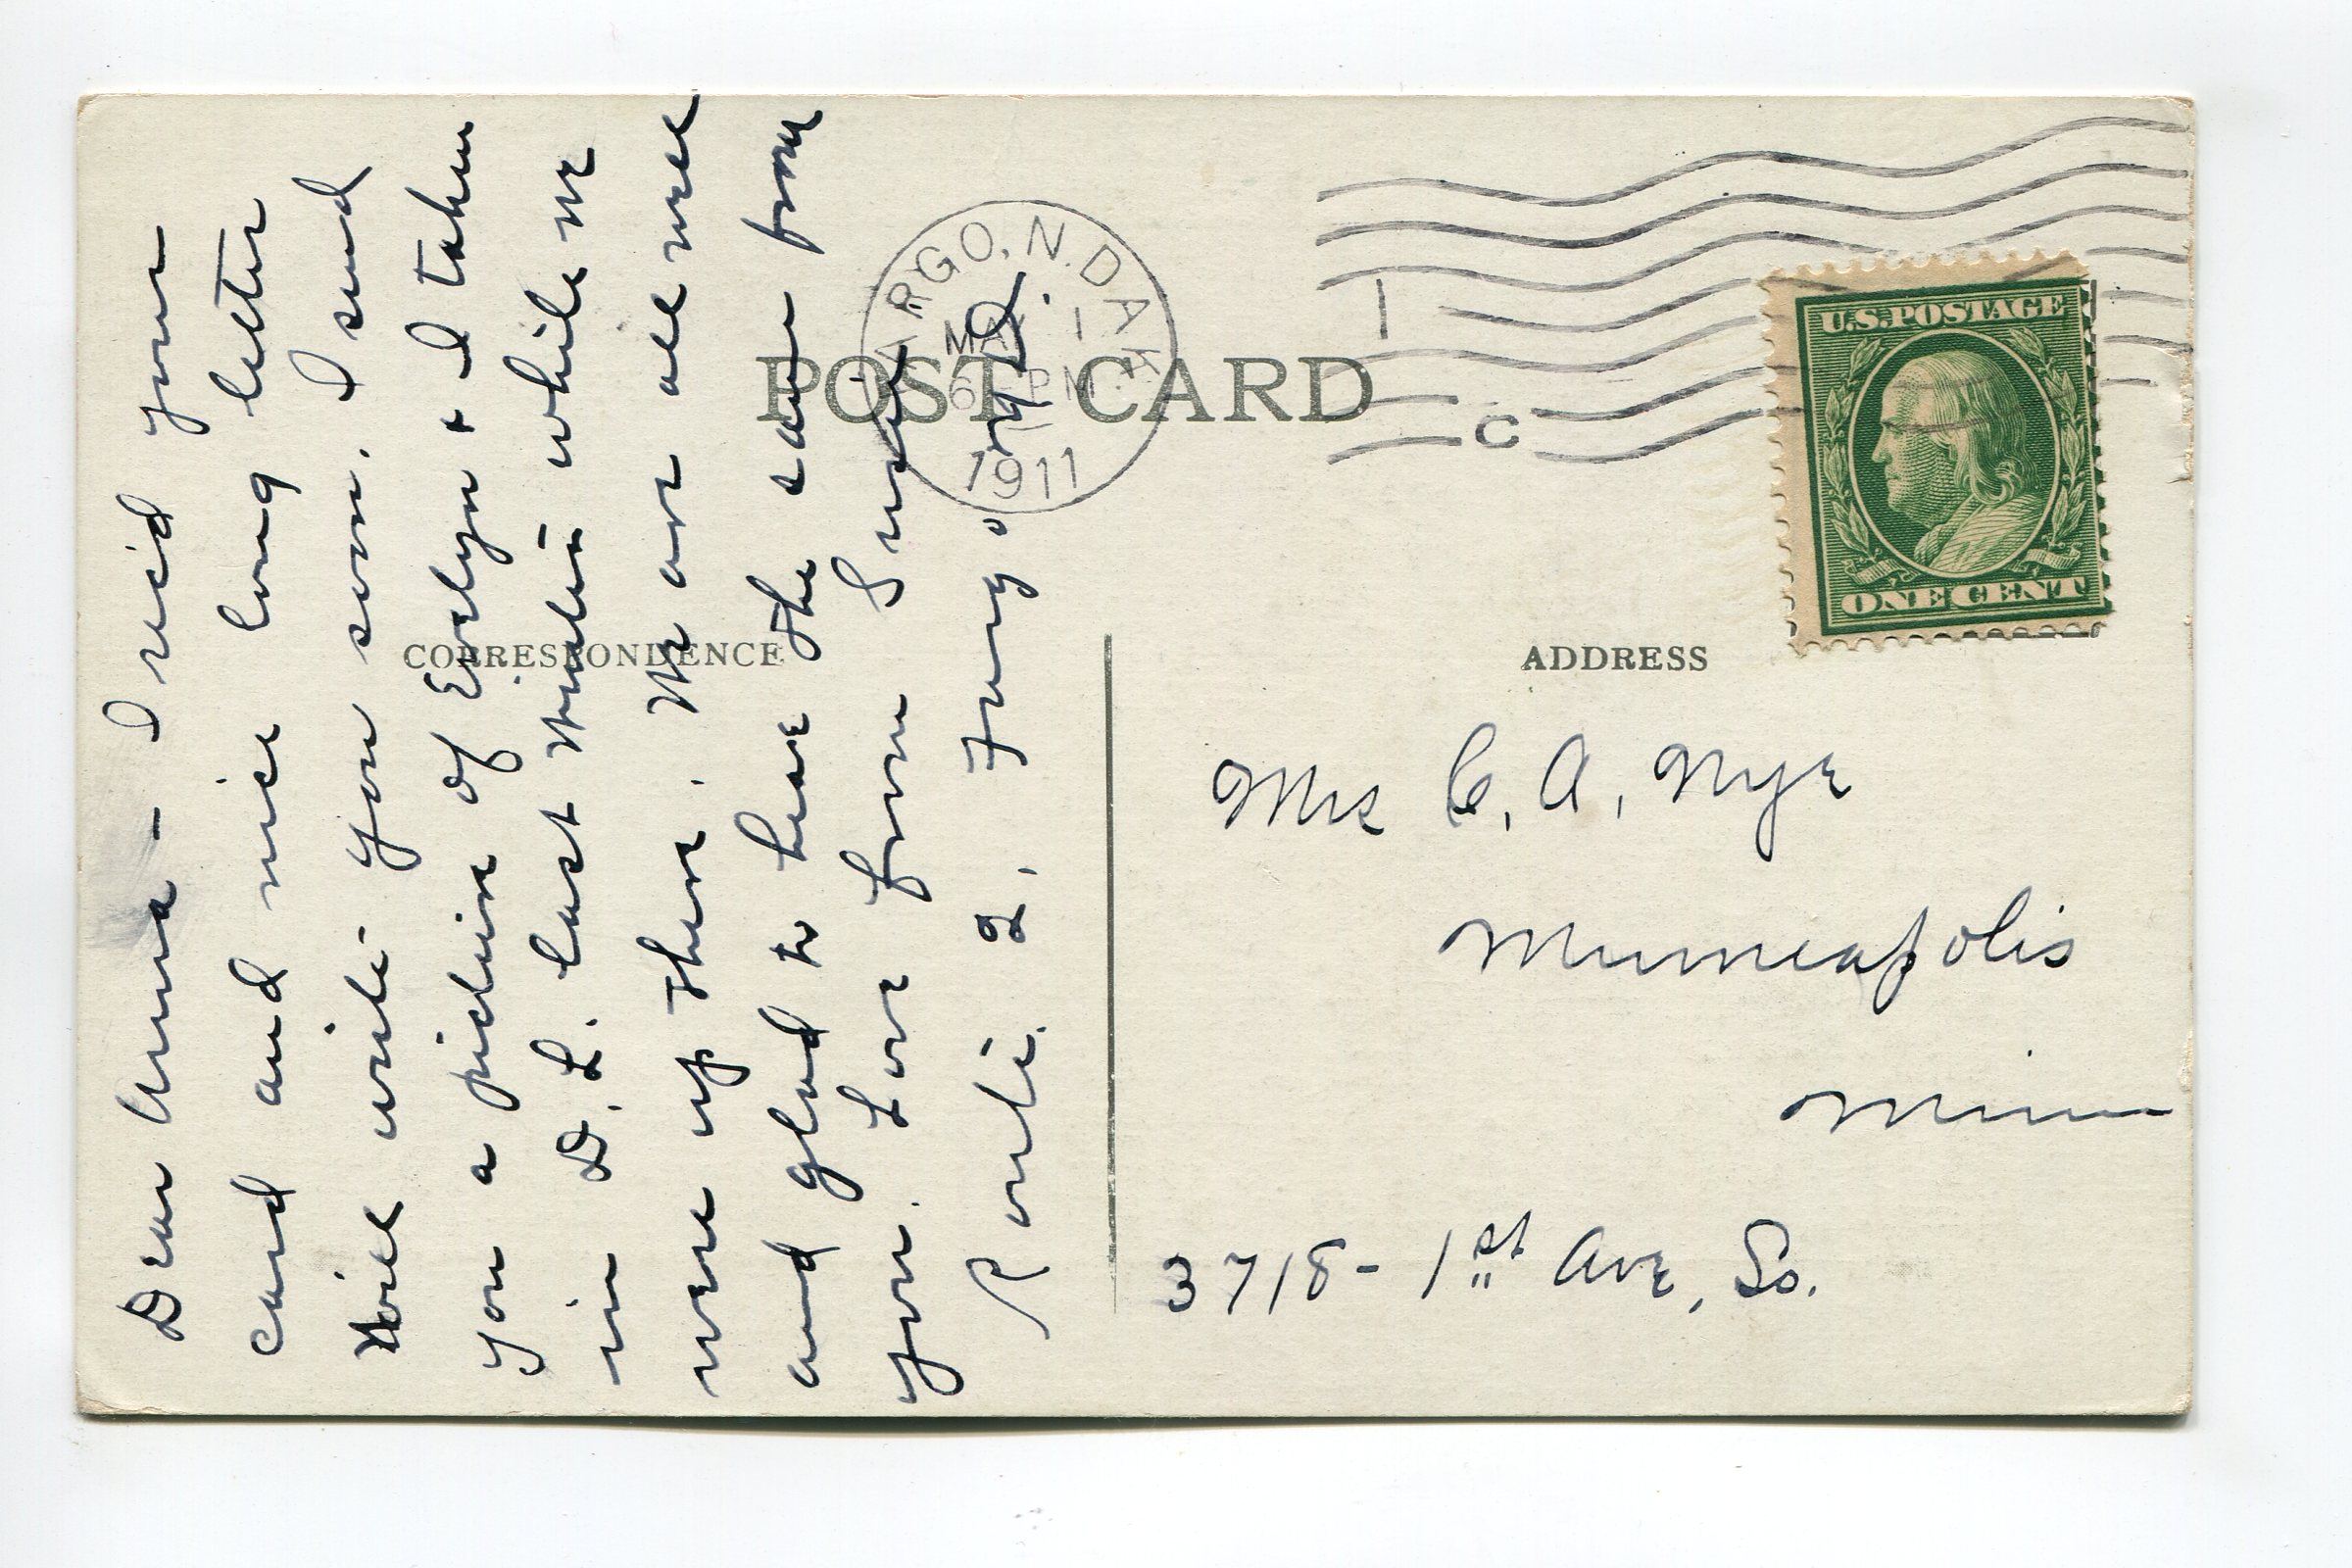 POST CARD
FARGO. N. DAK.
MA 1
6 PM
1911
C
U.S. POSTAGE
ONE CENT
CORRESPONDENCE
ADDRESS
Dear Anna – I rec'd your
card and nice long letter
Will write you soon. I send
you a picture of Evelyn & I taken
in D. L. last Winter while we
were up there. We are all well
and glad to hear the same from
you. Love from Susan
Route 2, Fargo, N.D.
Mrs C. A. Nye
Minneapolis
Minn
3718 - 1st Ave, So.